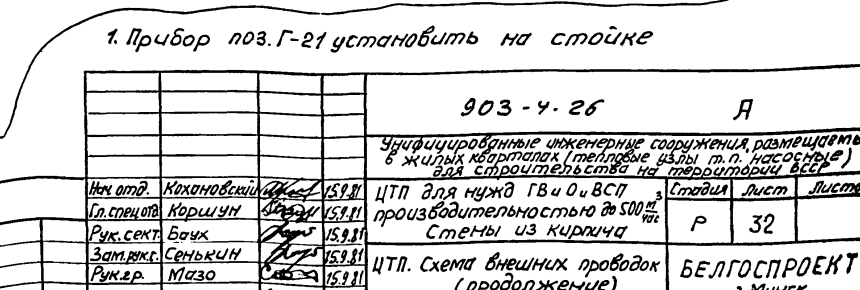 1. Прибор поз. Г-21 установить на стойке
903-4-26 А
Унифицированные инженерные сооружения, размещаемы
в жилых кварталах (тепловые узлы т.п. насосные)
для строительства на территории БССР
Нач отд. Кохановский 15.9.81
Гл.спец отд Коршун 15.9.81
Рук. сект. Баух 15.9.81
Зам.рук.г. Сенькин 15.9.81
Рук.гр. Мазо 15.9.81
ЦТП для нужд ГВ и О и ВСП
производительностью до 500 м³/час
Стены из кирпича
Стадия Лист Листо
Р 32
ЦТП. Схема внешних проводок
(продолжение)
БЕЛГОСПРОЕКТ
г. Минск